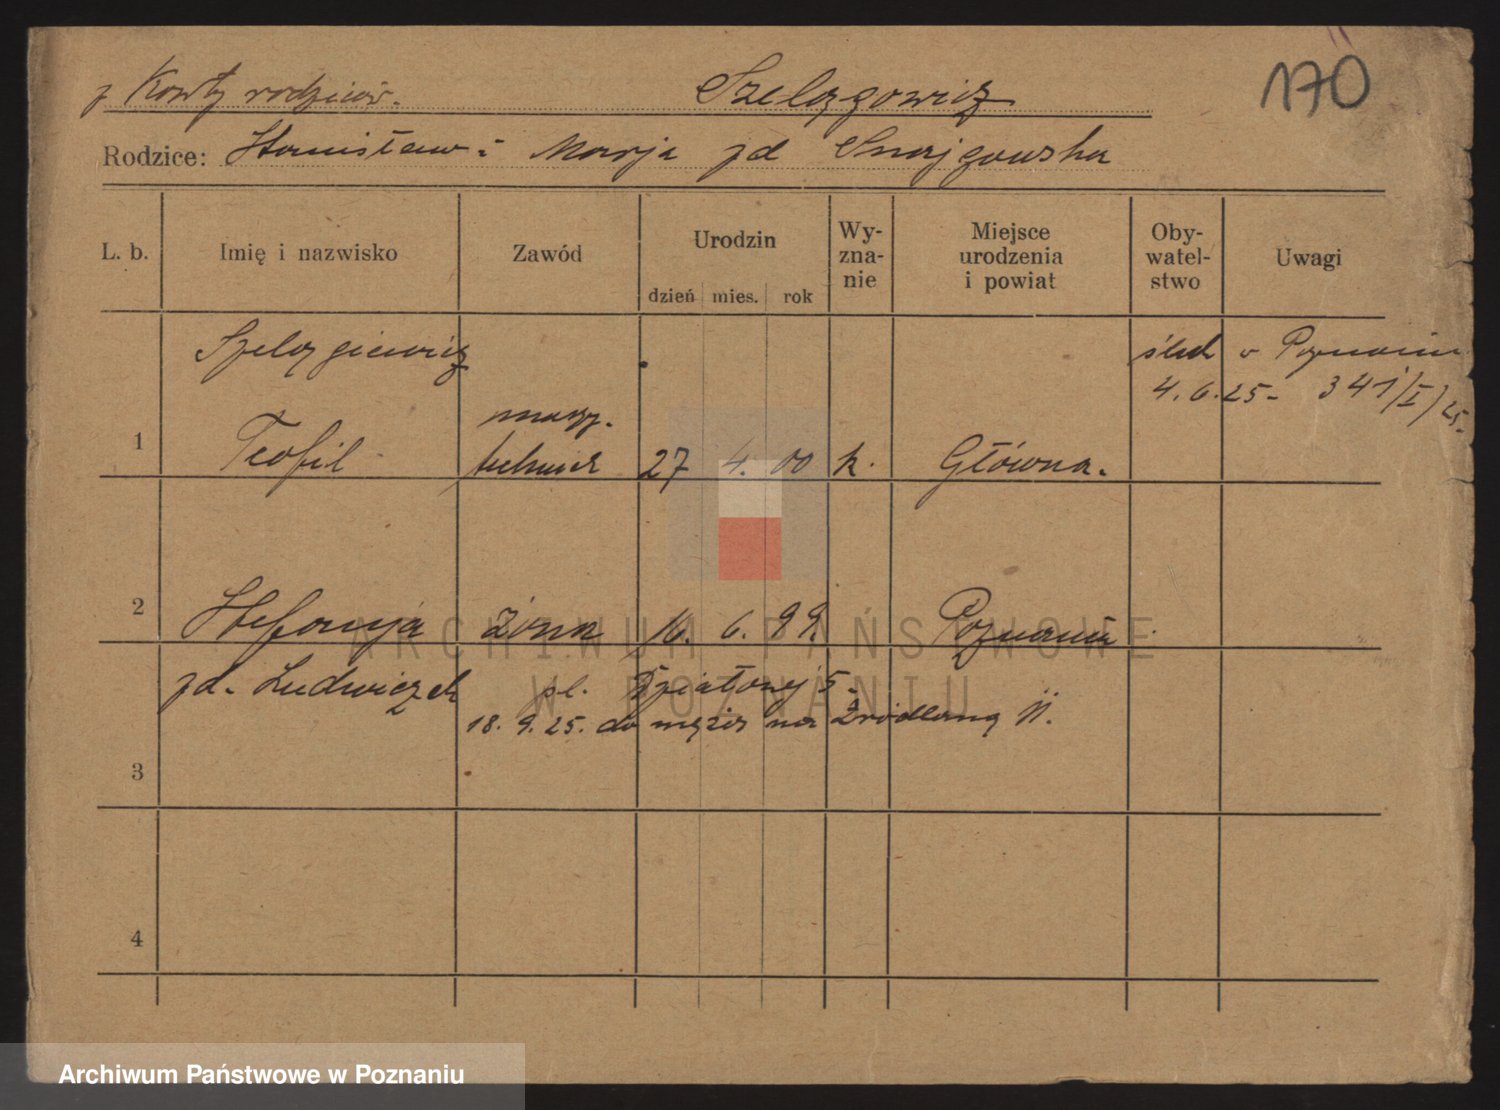 z Karty rodziców. Szelągowicz 170
Rodzice: Stanisław i Marja zd Snajgowska
L. b. Imię i nazwisko Zawód Urodzin Wy-zna-nie Miejsce urodzenia i powiat Oby-watel-stwo Uwagi
dzień mies. rok
Szelągiewicz ślub w Poznaniu
4.6.25- 341/I/25.
1 Teofil technick 27 4. 00 k. Główna.
2 Stefanja żona 16. 6. 99. Poznaniu
ARCHIWUM PAŃSTWOWE
zd. Ludwiczak pl. Działowy 5.
W POZNANIU
18. 9. 25. do męża na Źródlaną 11.
3
4
Archiwum Państwowe w Poznaniu